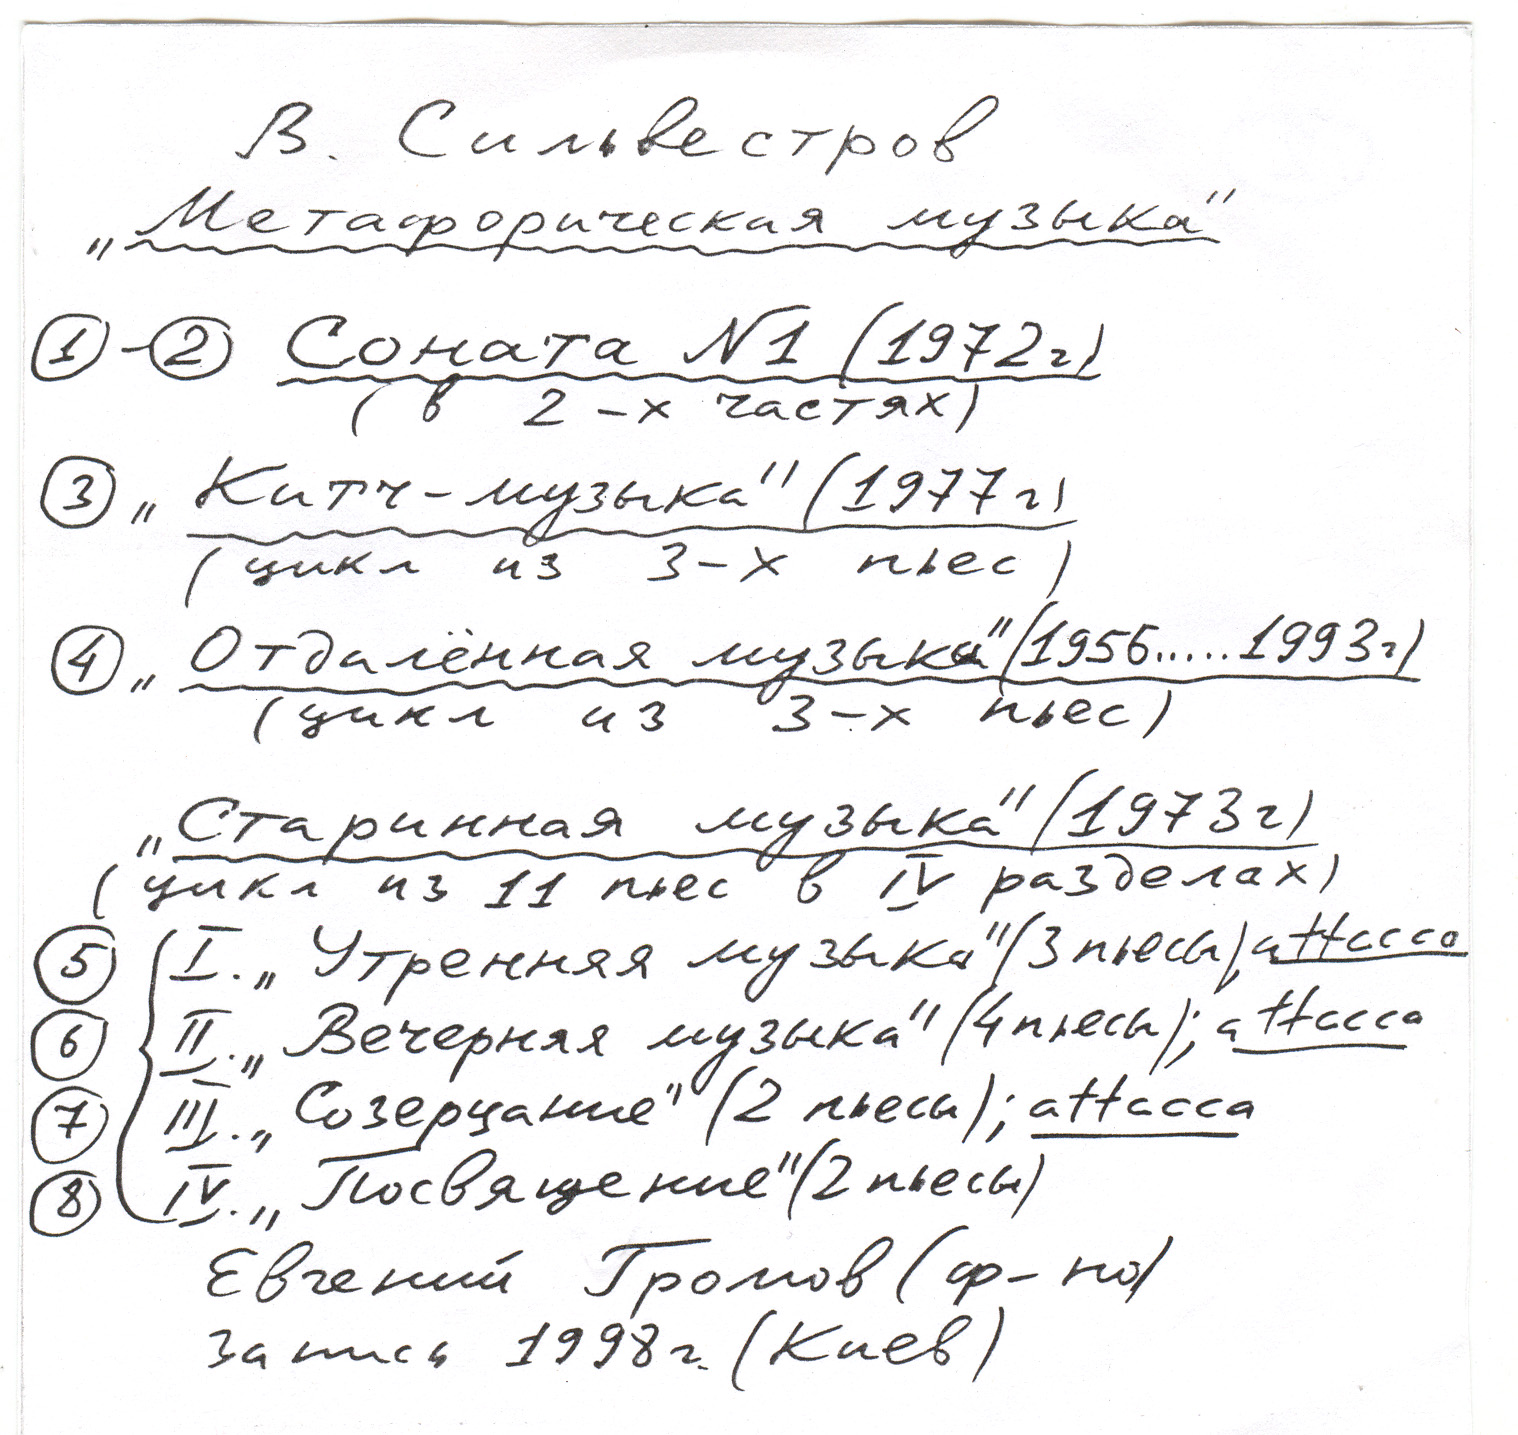 В. Сильвестров
„Метафорическая музыка"
1 - 2 Соната N1 (1972г)
( в 2-х частях)
3 „Китч-музыка" (1977г)
( цикл из 3-х пьес )
4 „Отдалённая музыка" (1956.....1993г)
(цикл из 3-х пьес)
„Старинная музыка" (1973г)
( цикл из 11 пьес в IV разделах)
5 I. „Утренняя музыка" (3 пьесы), attacca
6 II. „Вечерняя музыка" (4 пьесы); attacca
7 III. „Созерцание" (2 пьесы); attacca
8 IV. „Посвящение" (2 пьесы)
Евгений Громов (ф-но)
Запись 1998г. (Киев)